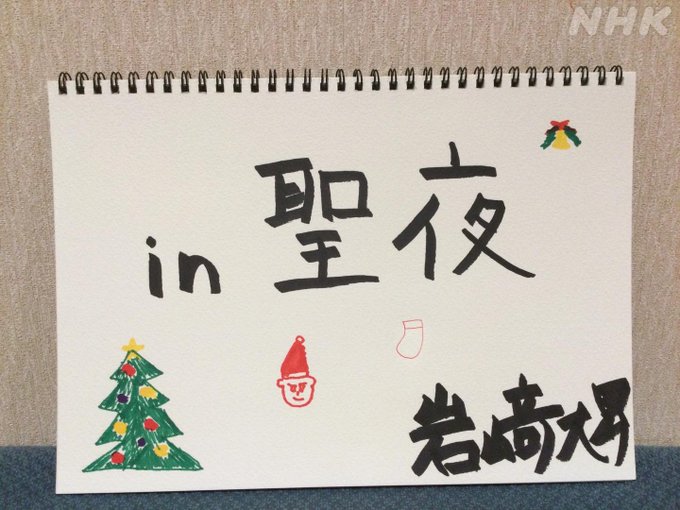 NHK
in 聖夜
岩﨑大昇